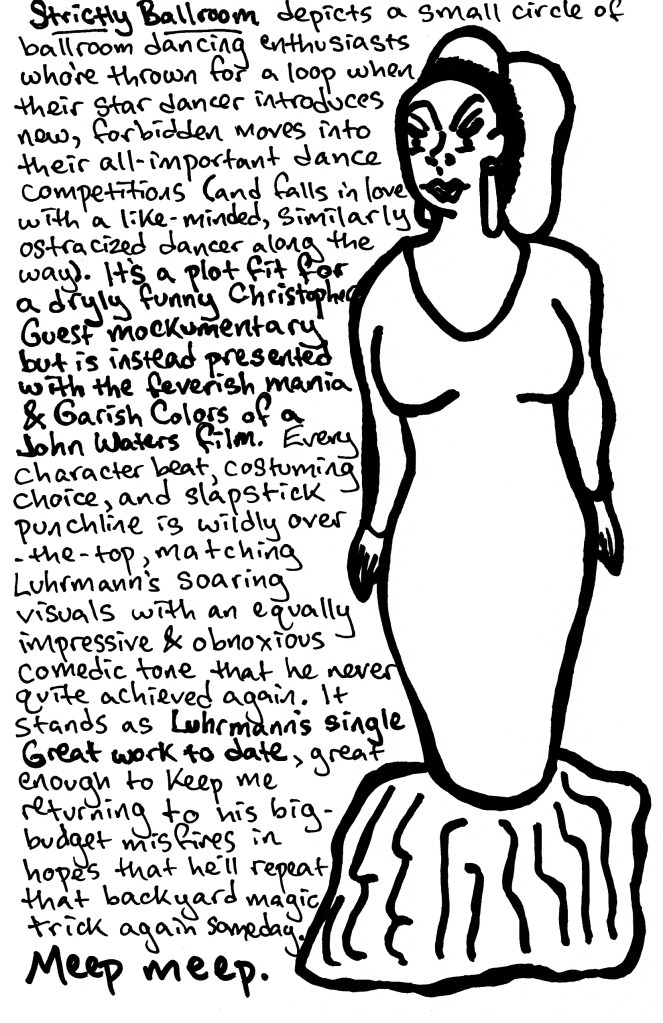 Strictly Ballroom depicts a small circle of
ballroom dancing enthusiasts
who're thrown for a loop when
their star dancer introduces
new, forbidden moves into
their all-important dance
competitions (and falls in love
with a like-minded, similarly
ostracized dancer along the
way). It's a plot fit for
a dryly funny Christopher
Guest mockumentary
but is instead presented
with the feverish mania
& Garish Colors of a
John Waters film. Every
character beat, costuming
choice, and slapstick
punchline is wildly over
-the-top, matching
Luhrmann's soaring
visuals with an equally
impressive & obnoxious
comedic tone that he never
quite achieved again. It
stands as Luhrmann's single
Great work to date, great
enough to keep me
returning to his big-
budget misfires in
hopes that he'll repeat
that backyard magic
trick again someday.
Meep meep.